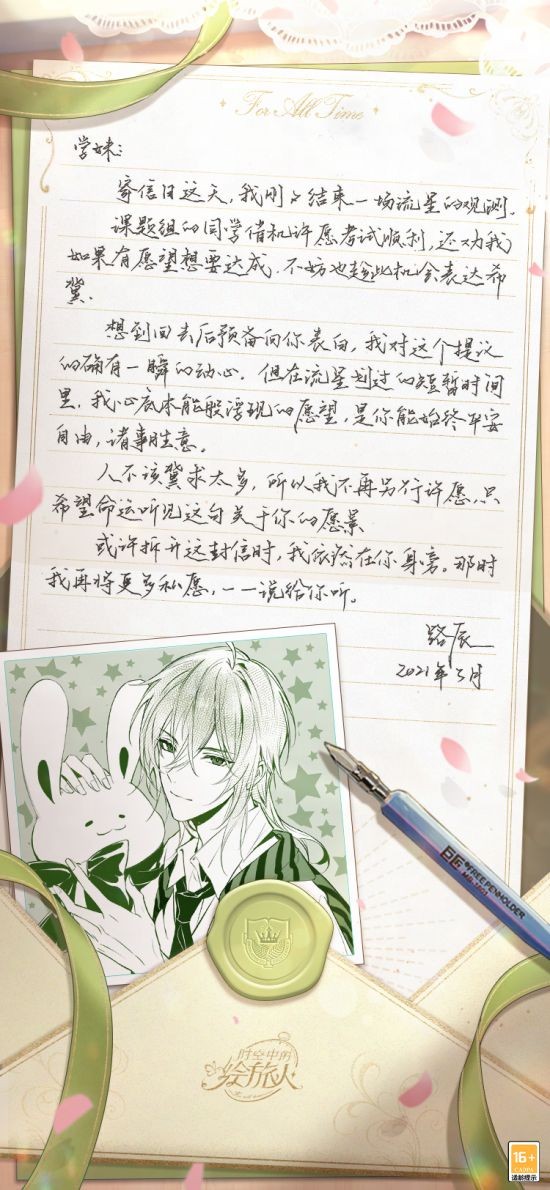 For All Time
学妹:
寄信日这天，我刚刚结束一场流星的观测。
课题组的同学借机许愿考试顺利，还劝我
如果有愿望想要达成，不妨也趁此机会表达希
冀。
想到回去后预备向你表白，我对这个提议
的确有一瞬的动心。但在流星划过的短暂时间
里，我心底本能般浮现的愿望，是你能始终平安
自由，诸事胜意。
人不该冀求太多，所以我不再另行许愿，只
希望命运听见这句关于你的愿景。
或许拆开这封信时，我依然在你身旁。那时
我再将更多私愿，一一说给你听。
路辰
2021年5月
PENHOLDER
时空中的
绘旅人
16+
CADPA
适龄提示